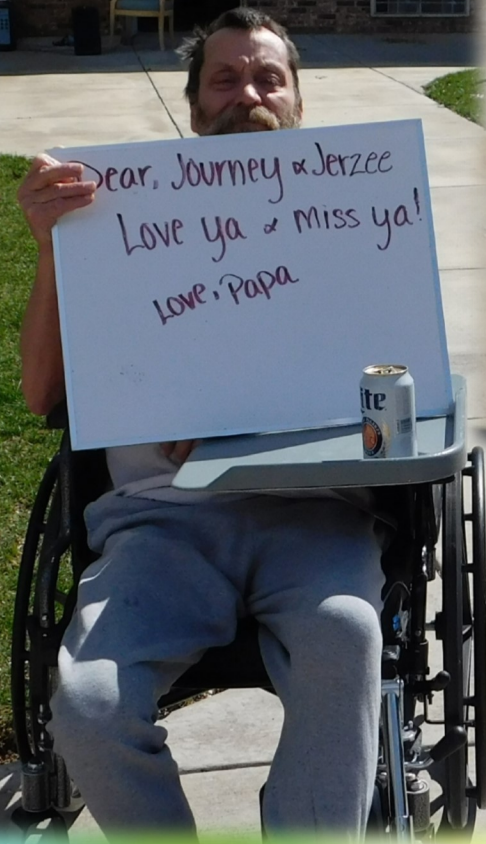 Dear, Journey & Jerzee
Love ya & miss ya!
Love, Papa
ite